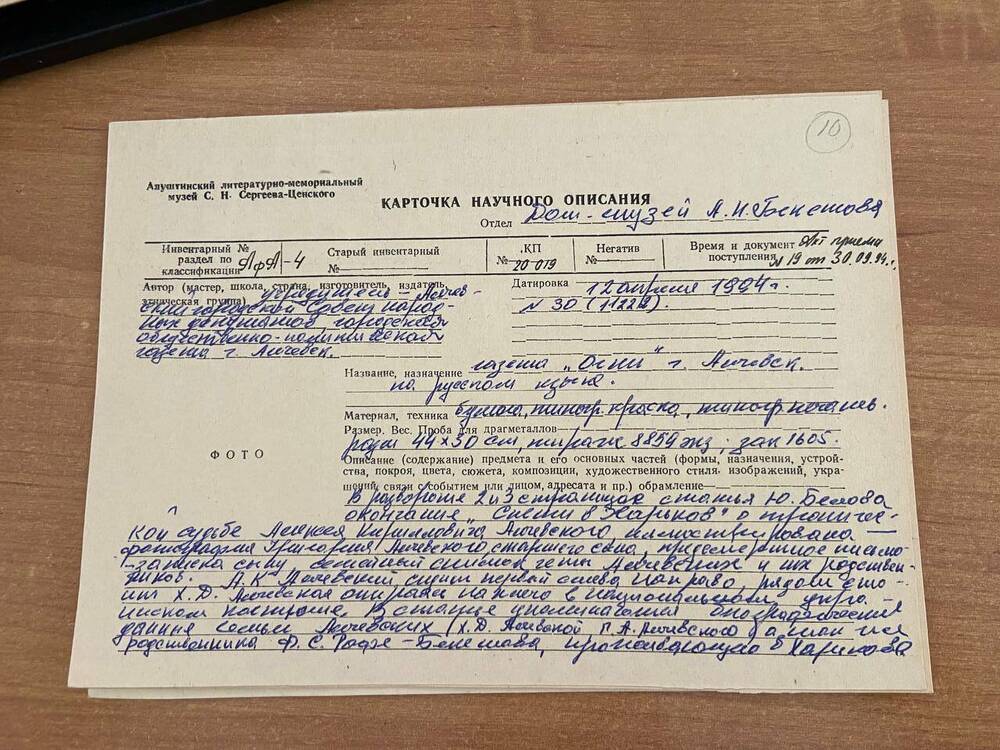 10
Алуштинский литературно-мемориальный
музей С. Н. Сергеева-Ценского
КАРТОЧКА НАУЧНОГО ОПИСАНИЯ
Отдел Дом-музей А.Н.Бекетова
Инвентарный №
раздел по
классификации АфА-4
Старый инвентарный
№
КП
№ 20 019
Негатив
№
Время и документ Акт приема
поступления N 19 от 30.09.94 г.
Автор (мастер, школа, страна, изготовитель, издатель,
этническая группа) учредитель - Алчев-
ский городской Совет народ-
ных депутатов, городская
общественно-политическая
газета г. Алчевск.
Датировка 12 апреля 1994 г.
N 30
Название, назначение газета „Огни" г. Алчевск.
на русском языке.
Материал, техника бумага, типогр. краска, типогр. печать.
Размер. Вес. Проба для драгметаллов
разм 44х30 см, тираж 8859 экз; зак 1605.
Описание (содержание) предмета и его основных частей (формы, назначения, устрой-
ства, покроя, цвета, сюжета, композиции, художественного стиля изображений, укра-
шений, связи с событием или лицом, адресата и пр.) обрамление
ФОТО
В развороте 2 и 3 страницах статья Ю. Белова
окончание „Спеши в Харьков" о трагичес-
кой судьбе Алексея Кирилловича Алчевского, иллюстрирована
фотография Григория Алчевского старшего сына, предсмертное письмо-
записка сыну семейный снимок четы Алчевских и их родствен-
ников. А.К Алчевский сидит первый слева направо, рядом сто-
ит Х.Д. Алчевская опираясь на плечо в национальном украи-
нском костюме. В статье упоминаются биографические
данные семьи Алчевских (Х.Д. Алчевской Г.А. Алчевского) а так же
родственника Ф.С. Бекетова, проживающего в Харькове.